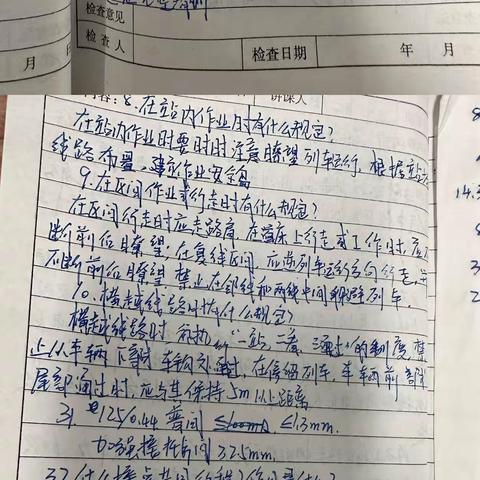 检查意见
检查人 检查日期 年 月
月
内容: 8. 在站内作业时有什么规定? 讲课人
在站内作业时要时时注意瞭望列车运行, 根据站场
线路布置, 确定作业安全岛
9. 在区间作业或行走时有什么规定?
在区间行走时应走路肩, 在道床上行走或工作时, 应不
断前后瞭望, 在复线区间, 应逆列车运行方向行走, 并
不断前后瞭望 禁止在邻线和两线中间躲避列车
10. 横越线路时有什么规定?
横越线路时, 执行 "一站, 二看, 三通过" 的制度, 禁
止从车辆下部 车钩处通过, 在停留列车, 车辆前部
尾部通过时, 应与其保持5m以上距离
31. 125/0.44 普间 ≤1.3mm.
325mm.